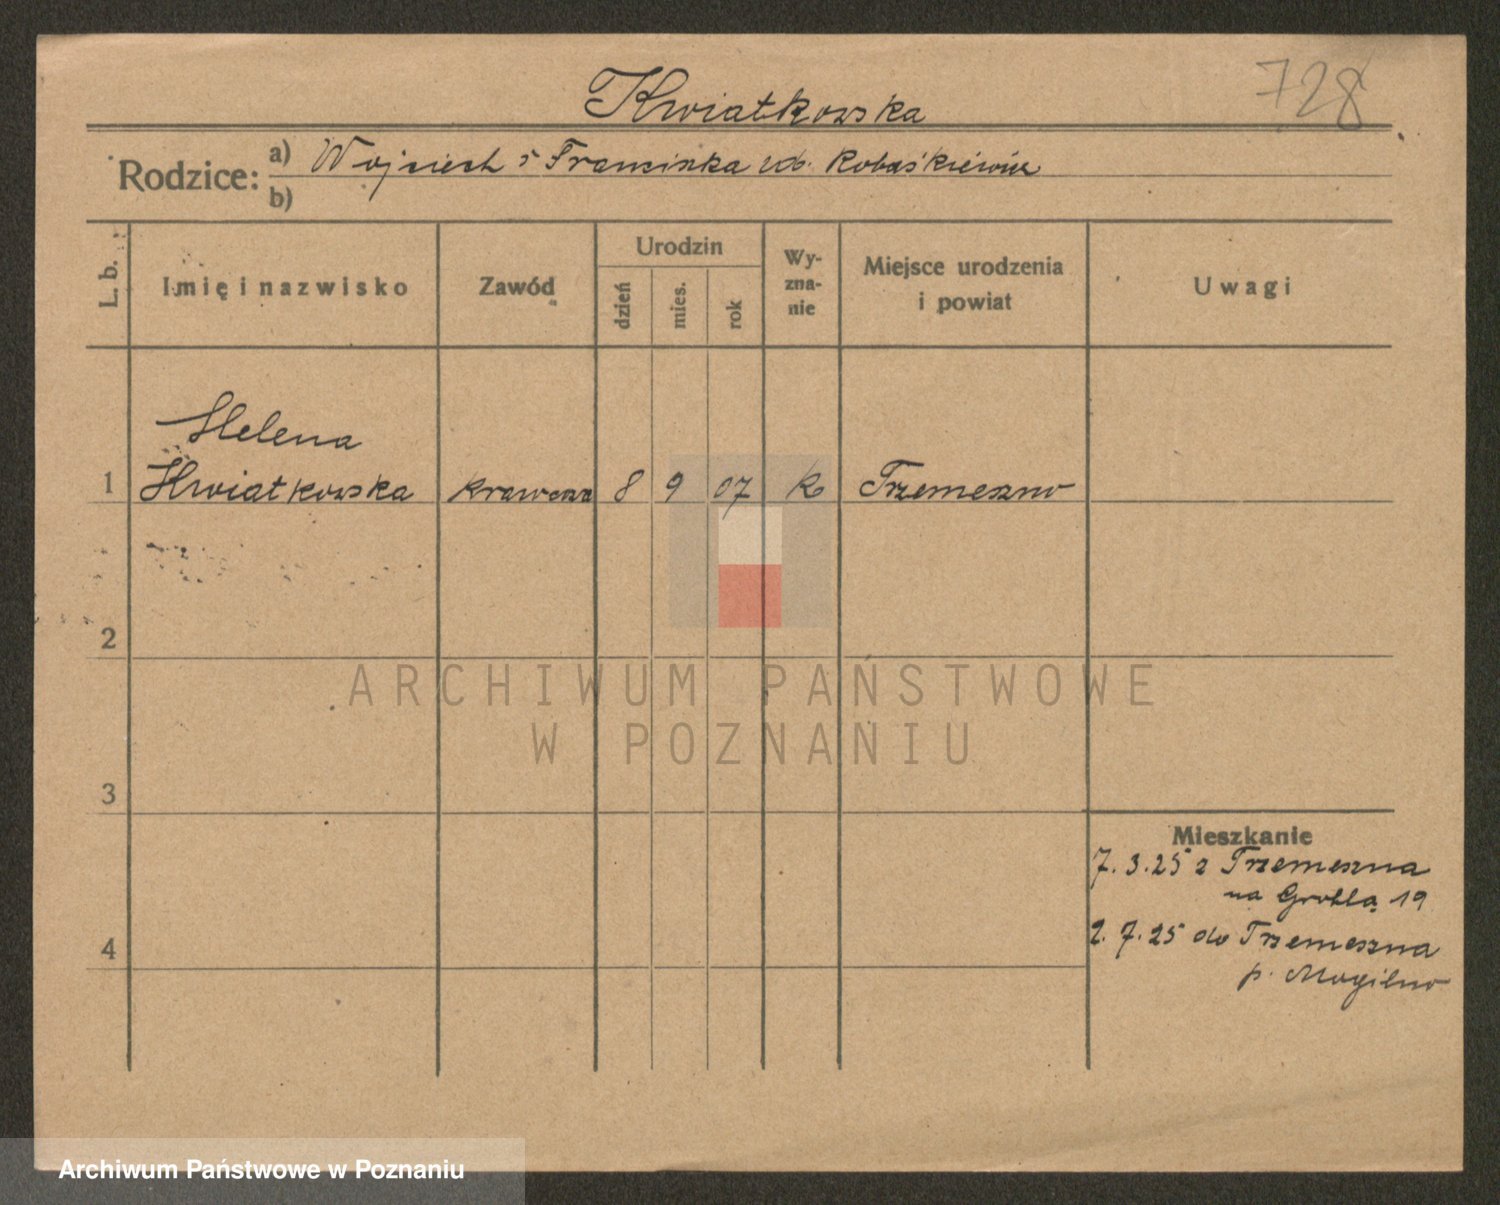 728
Kwiatkowska
Rodzice: a) Wojciech i Franciszka
b)
L. b.
Imię i nazwisko
Zawód
Urodzin
dzień
mies.
rok
Wy-
zna-
nie
Miejsce urodzenia
i powiat
Uwagi
Helena
1 Kwiatkowska krawcza 8 9 07 k Trzemeszno
2
3
4
Mieszkanie
7.3.25 z Trzemeszna
na Groblą 19
2.7.25 do Trzemeszna
p. Mogilno
ARCHIWUM PAŃSTWOWE
W POZNANIU
Archiwum Państwowe w Poznaniu